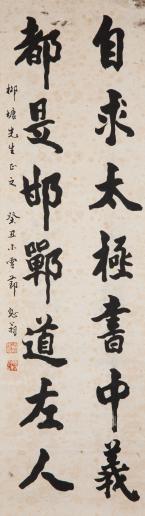 自求太極書中義
都是邯鄲道左人
柳塘先生正之 癸丑小雪節